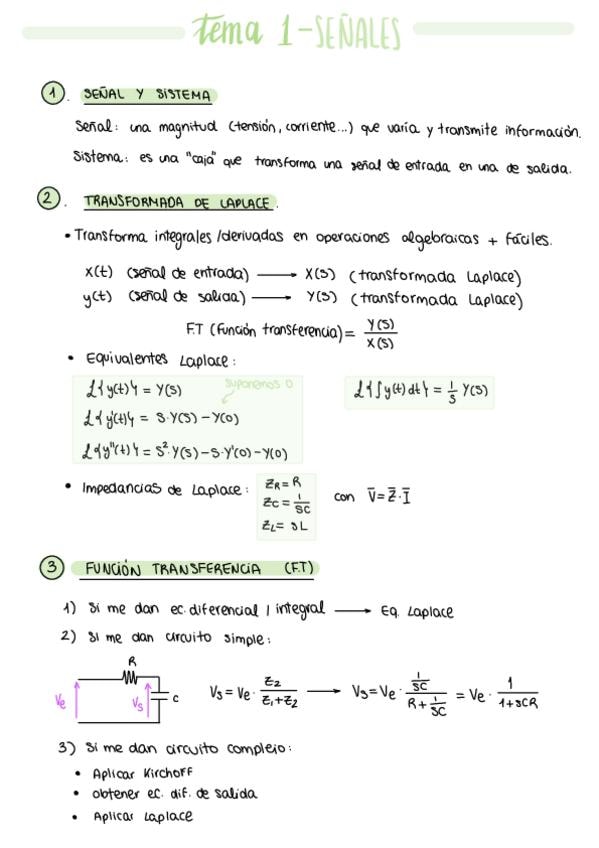 Tema 1 - SEÑALES
1. SEÑAL Y SISTEMA
Señal: una magnitud (tensión, corriente...) que varía y transmite información.
Sistema: es una "caja" que transforma una señal de entrada en una de salida.
2. TRANSFORMADA DE LAPLACE.
• Transforma integrales/derivadas en operaciones algebraicas + fáciles.
x(t) (señal de entrada) ⟶ X(s) (transformada Laplace)
y(t) (señal de salida) ⟶ Y(s) (transformada Laplace)
F.T (Función transferencia) = Y(s) / X(s)
• Equivalentes Laplace:
ℒ{y(t)} = Y(s) suponemos 0 ℒ{∫y(t)dt} = 1/s Y(s)
ℒ{y'(t)} = s·Y(s) - Y(0)
ℒ{y''(t)} = s²·Y(s) - s·Y'(0) - Y(0)
• Impedancias de Laplace: ZR = R
ZC = 1/SC con V̅ = Z̅·I̅
ZL = SL
3 FUNCIÓN TRANSFERENCIA (F.T)
1) Si me dan ec. diferencial / integral ⟶ Eq. Laplace
2) Si me dan circuito simple:
R
Ve Vs C Vs = Ve · Z2 / Z1+Z2 ⟶ Vs = Ve · (1/SC) / (R + 1/SC) = Ve · 1 / 1+SCR
3) Si me dan circuito complejo:
• Aplicar Kirchoff
• obtener ec. dif. de salida
• Aplicar Laplace